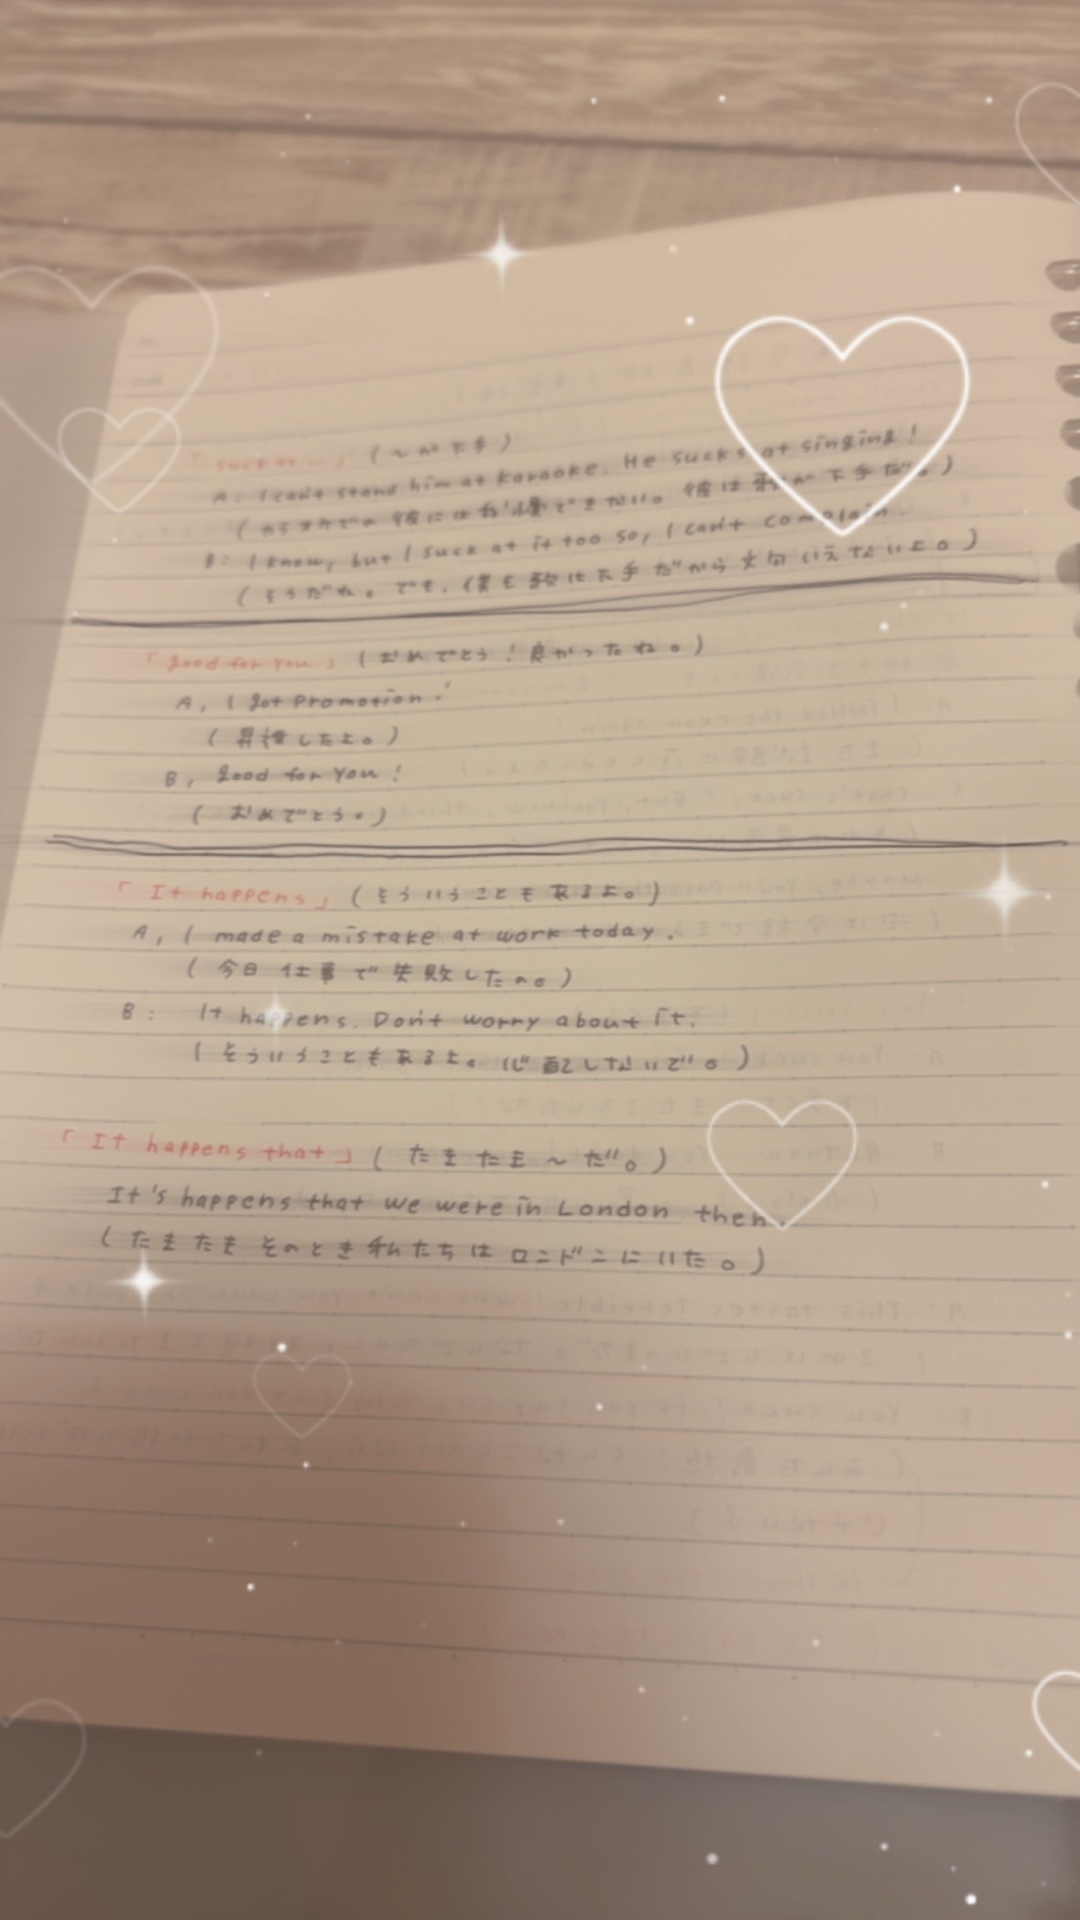 「suck at ~」(～が下手)
A: I can't stand him at karaoke. He sucks at singing!
(カラオケでの彼には我慢できない。彼は歌が下手だ。)
B: I know, but I suck at it too so, I can't complain.
(そうだね。でも、僕も歌は下手だから文句いえないよ。)
「good for you」(おめでとう!良かったね。)
A, I got promotion!
(昇進したよ。)
B, good for you!
(おめでとう。)
「It happens」(そういうこともあるよ。)
A, I made a mistake at work today.
(今日仕事で失敗したの。)
B: It happens. Don't worry about it.
(そういうこともあるよ。心配しないで。)
「It happens that」(たまたま～だ。)
It's happens that we were in London then.
(たまたまそのとき私たちはロンドンにいた。)